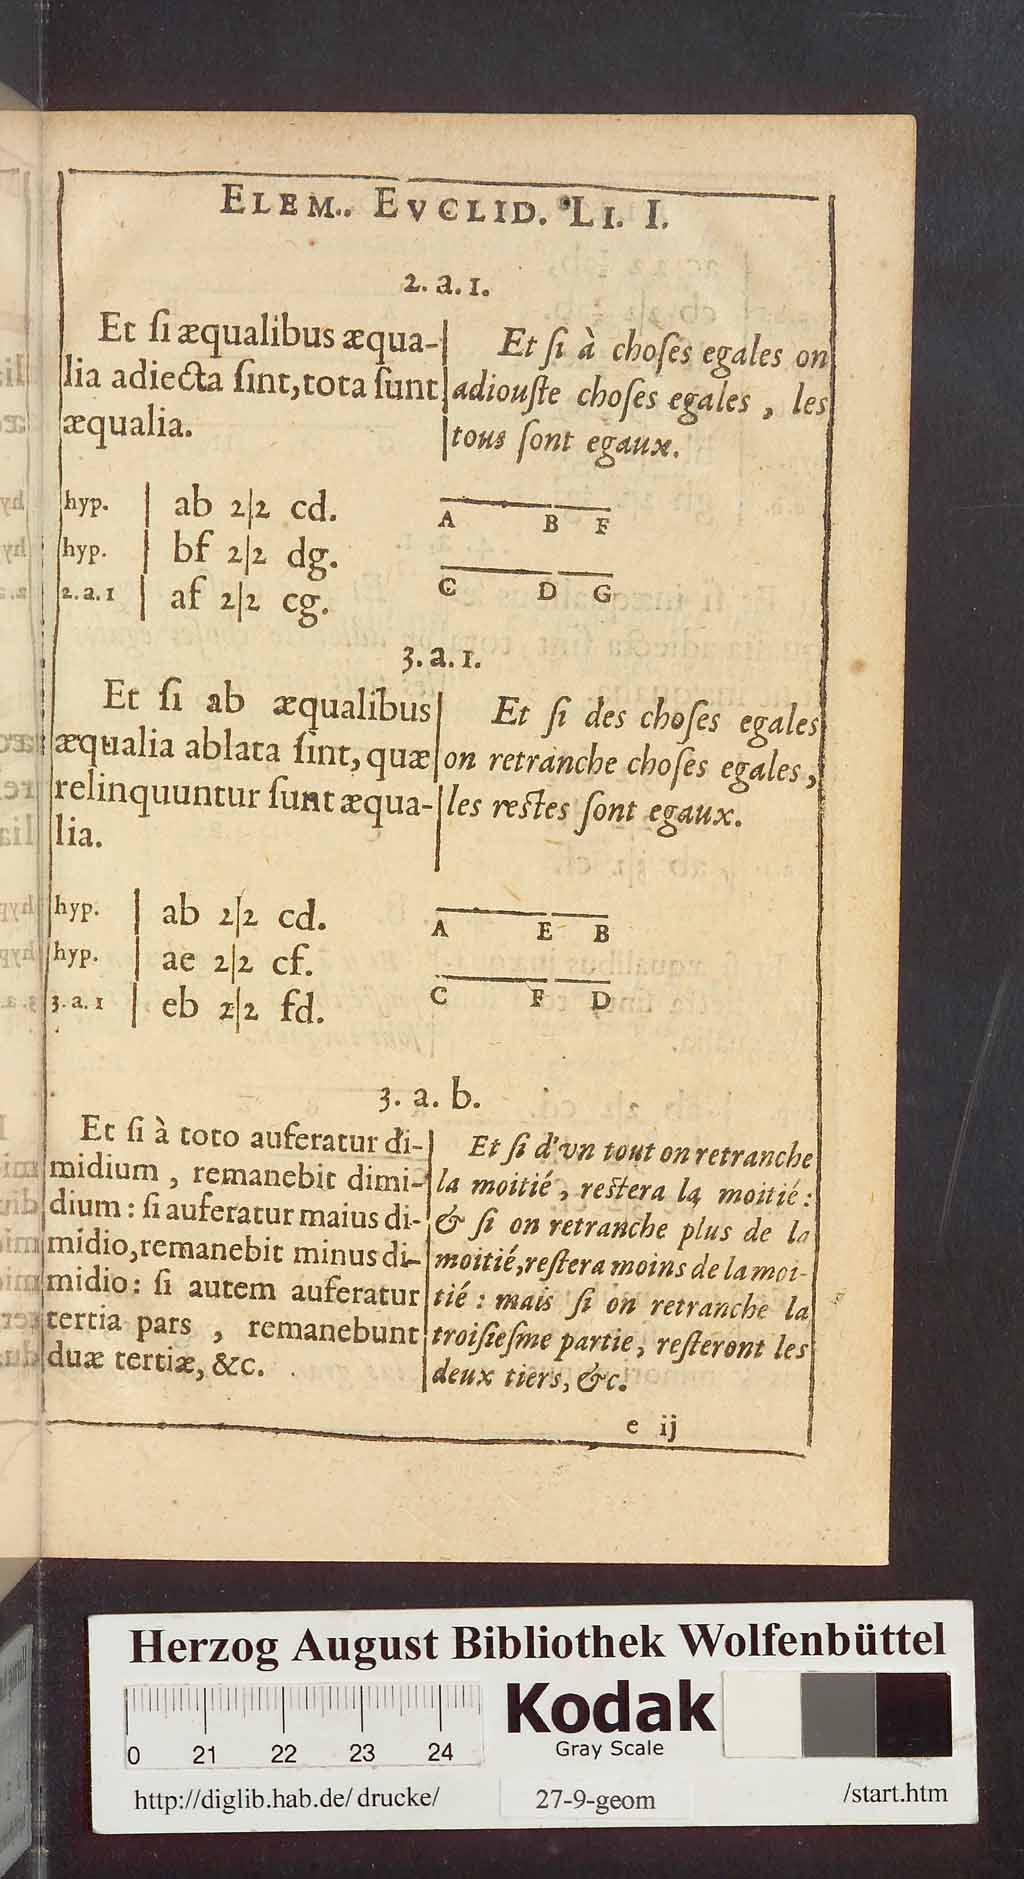 ELEM. EVCLID. LI. I.
2. a. 1.
Et ſi æqualibus æqua-
lia adiecta ſint, tota ſunt
æqualia.
Et ſi à choſes egales on
adiouſte choſes egales, les
tous ſont egaux.
hyp. | ab 2|2 cd.
hyp. | bf 2|2 dg.
2. a. 1 | af 2|2 cg.
A B F
C D G
3. a. 1.
Et ſi ab æqualibus
æqualia ablata ſint, quæ
relinquuntur ſunt æqua-
lia.
Et ſi des choſes egales
on retranche choſes egales,
les reſtes ſont egaux.
hyp. | ab 2|2 cd.
hyp. | ae 2|2 cf.
3. a. 1 | eb 2|2 fd.
A E B
C F D
3. a. b.
Et ſi à toto auferatur di-
midium, remanebit dimi-
dium: ſi auferatur maius di-
midio, remanebit minus di-
midio: ſi autem auferatur
tertia pars, remanebunt
duæ tertiæ, &c.
Et ſi d'vn tout on retranche
la moitié, reſtera la moitié:
& ſi on retranche plus de la
moitié, reſtera moins de la moi-
tié: mais ſi on retranche la
troiſieſme partie, reſteront les
deux tiers, &c.
e ij
Herzog August Bibliothek Wolfenbüttel
0 21 22 23 24
Kodak
Gray Scale
http://diglib.hab.de/drucke/ 27-9-geom /start.htm